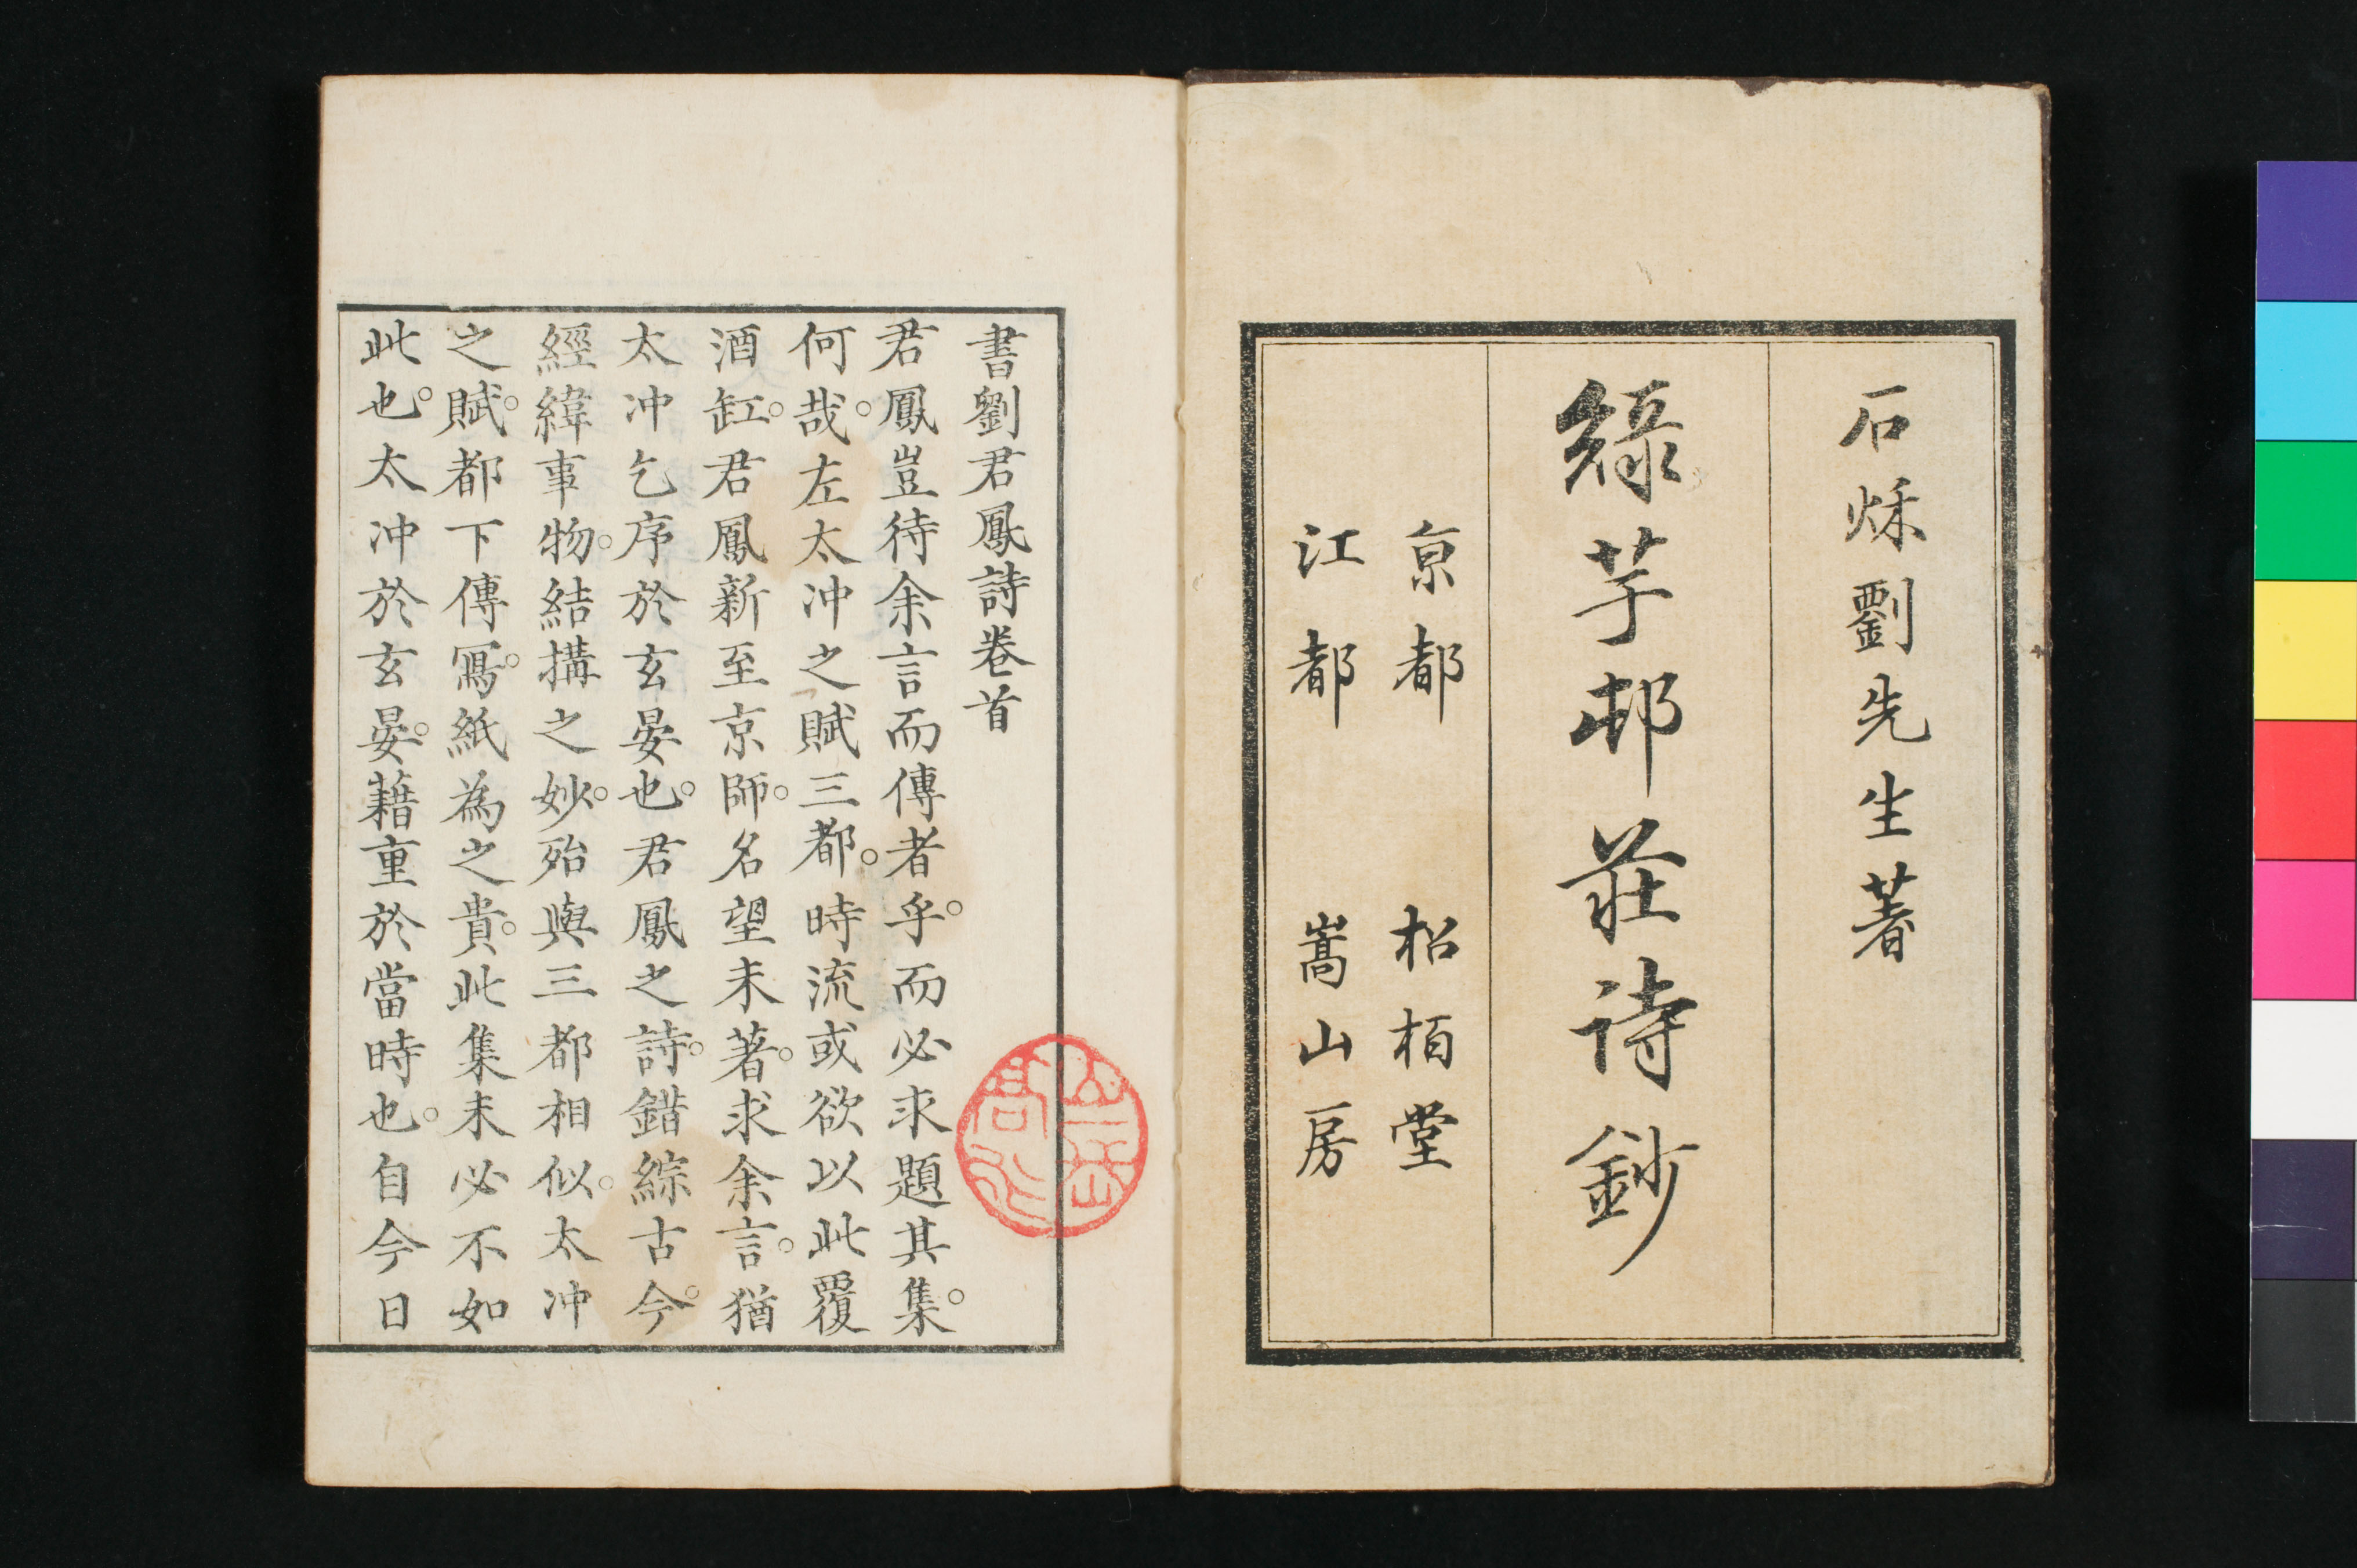 石秌劉先生著
綠芋邨莊詩鈔
京都　松栢堂
江都　嵩山房
書劉君鳳詩卷首
君鳳豈待余言而傳者乎。而必求題其集。
何哉。左太冲之賦三都。時流或欲以此覆
酒缸。君鳳新至京師。名望未著。求余言。猶
太冲乞序於玄晏也。君鳳之詩。錯綜古今。
經緯事物。結搆之妙。殆與三都相似。太冲
之賦。都下傳寫。紙為之貴。此集未必不如
此也。太冲於玄晏。藉重於當時也。自今日